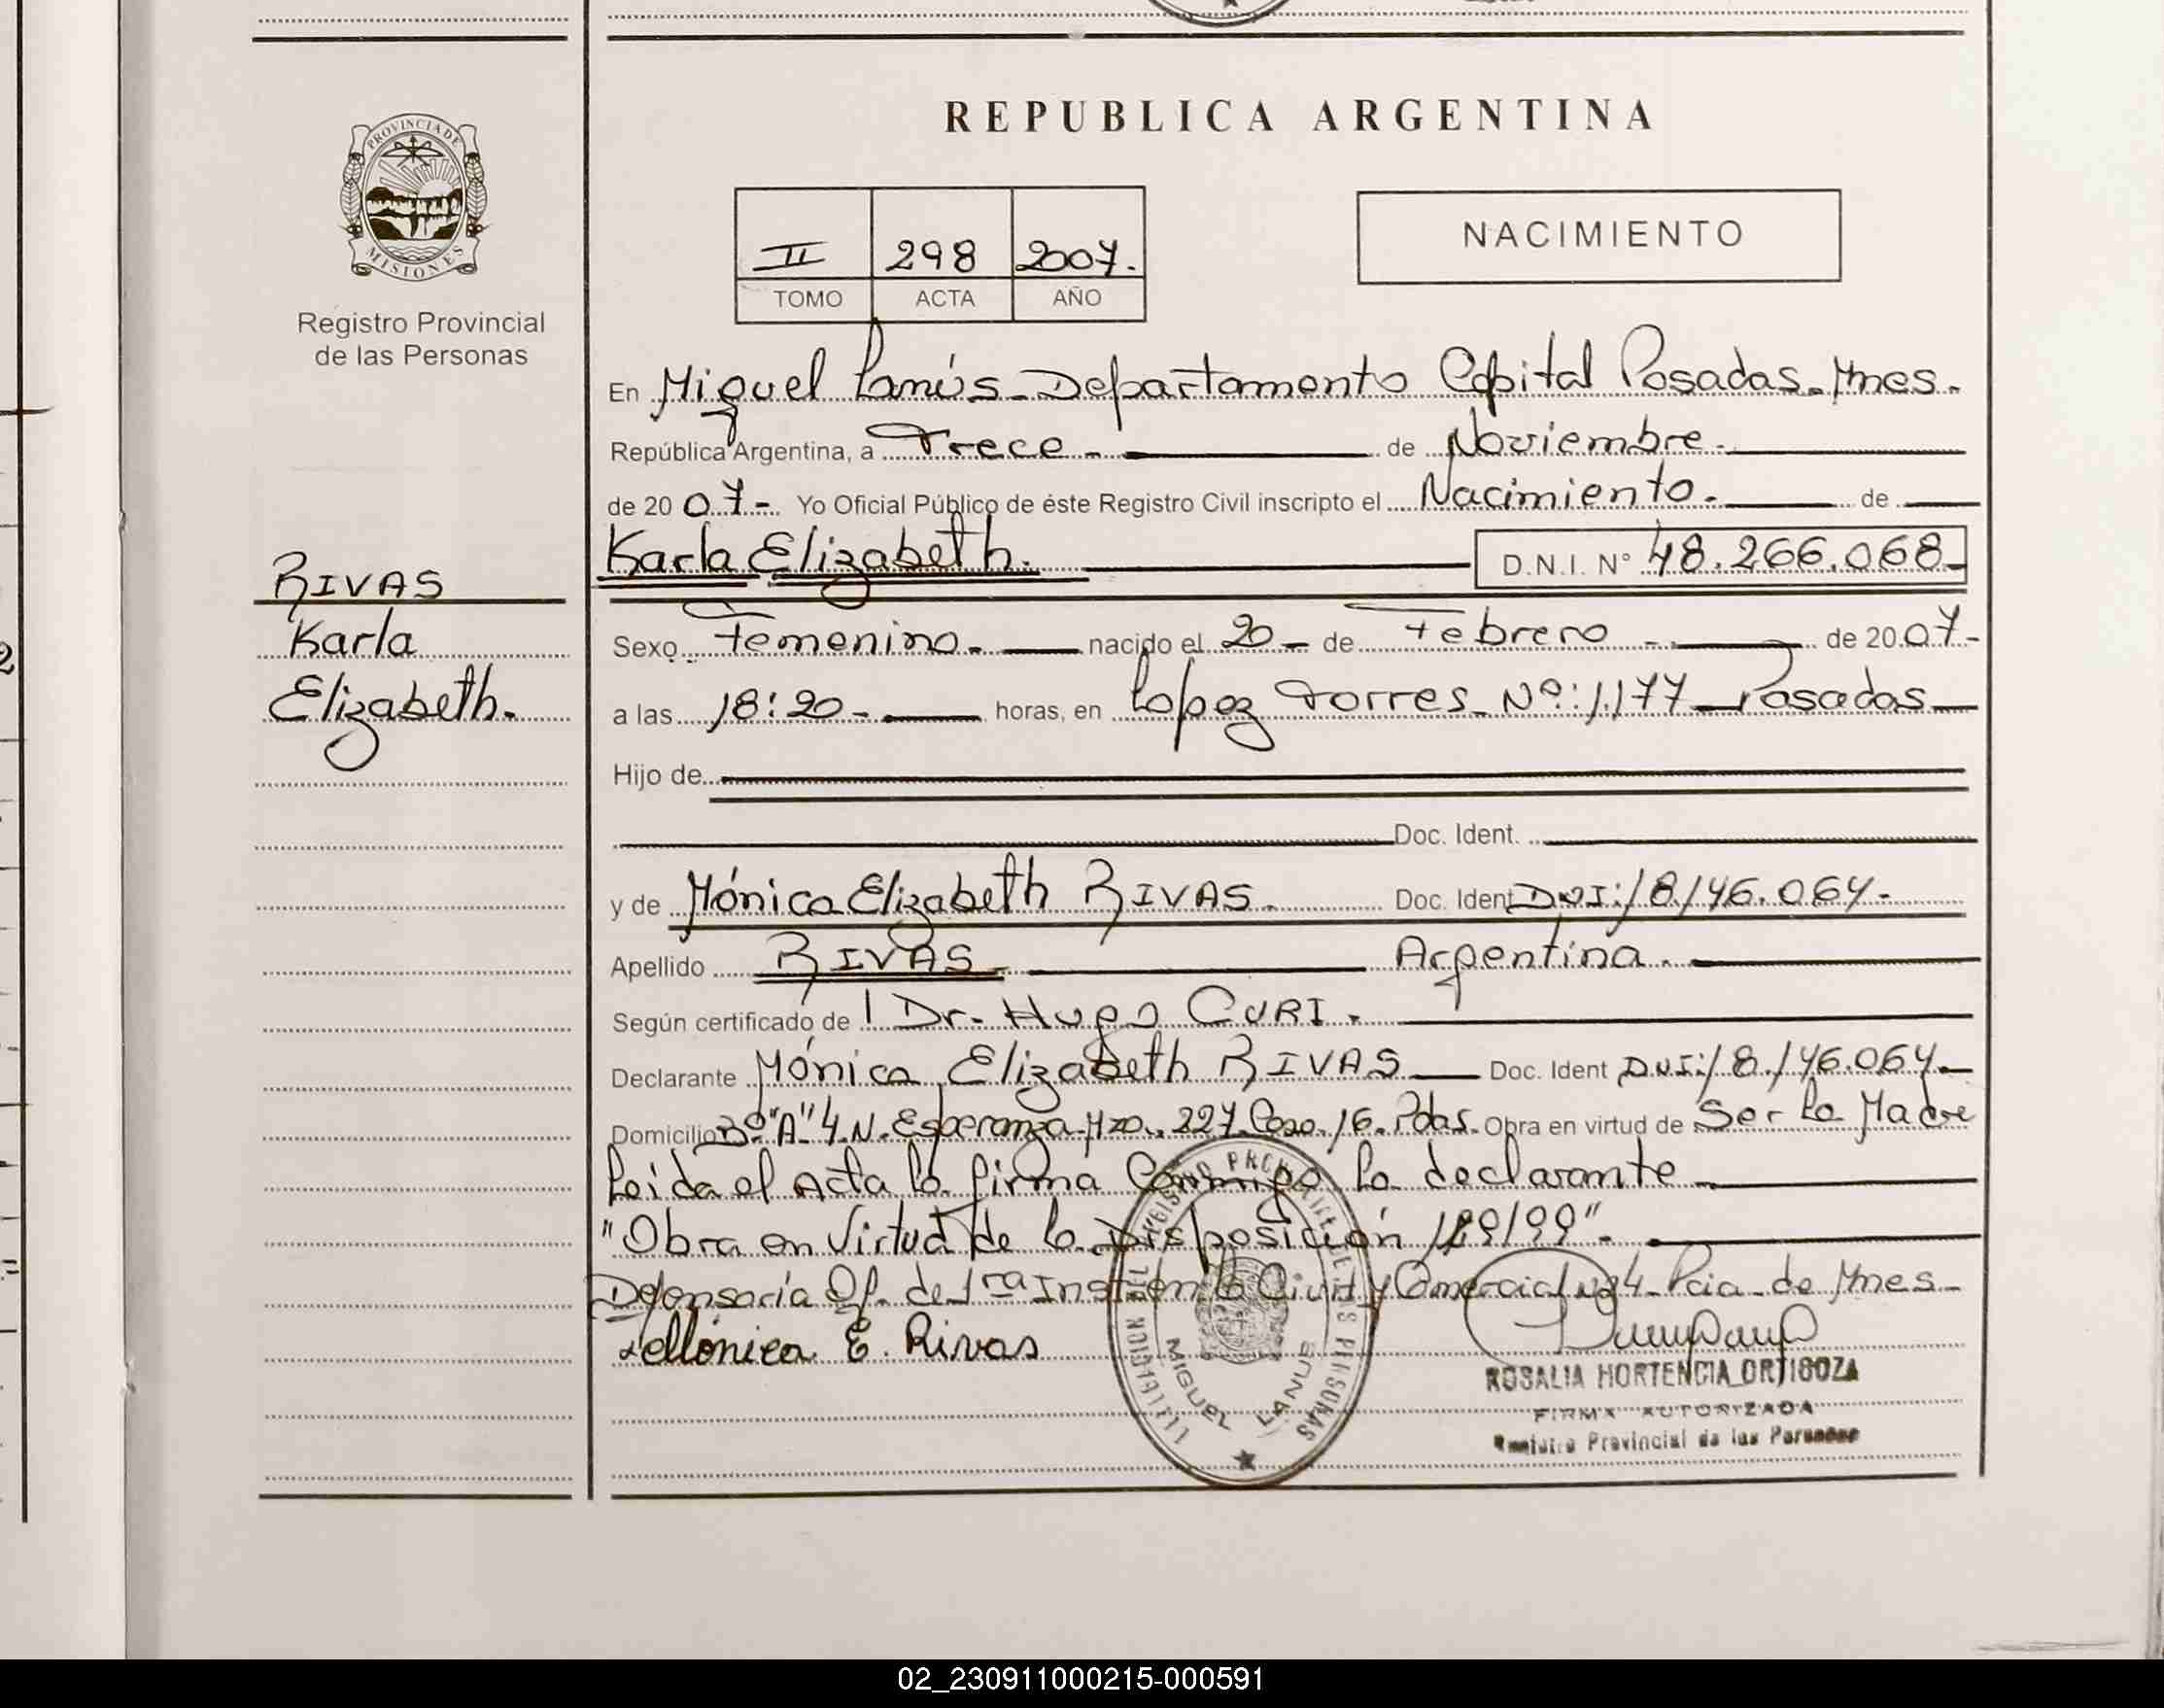 REPUBLICA ARGENTINA
PROVINCIA DE
MISIONES
Registro Provincial
de las Personas
II 298 2007.
TOMO ACTA AÑO
NACIMIENTO
En Miguel Lanús - Departamento Capital Posadas - Mnes.
República Argentina, a Trece - de Noviembre.
de 20 07 - Yo Oficial Público de éste Registro Civil inscripto el Nacimiento. de
Karla Elizabeth. D.N.I. N° 48.266.068
RIVAS
Karla
Elizabeth.
Sexo Femenino. nacido el 20 - de Febrero - de 20 07 -
a las 18:20 - horas, en Lopez Torres - Nº: 1.177 - Posadas
Hijo de
Doc. Ident.
y de Mónica Elizabeth RIVAS. Doc. Ident DNI: 18.146.064 -
Apellido RIVAS Argentina.
Según certificado de Dr. Hugo CURI.
Declarante Mónica Elizabeth RIVAS Doc. Ident DNI: 18.146.064
Domicilio Bº "A" 4. N. Esperanza - Mza. 227 Casa 16. Pdas. Obra en virtud de Ser La Madre
Leida el Acta la firma Conmigo la declarante
"Obra en Virtud de la Disposición 199/99".
Defensoría Of. de 1ra Inst. en lo Civil y Comercial Nº 4 - Pcia - de Mnes -
Mónica E. Rivas
MIGUEL LANUS
ROSALIA HORTENCIA ORTIGOZA
FIRMA AUTORIZADA
Registro Provincial de las Personas
02_230911000215-000591